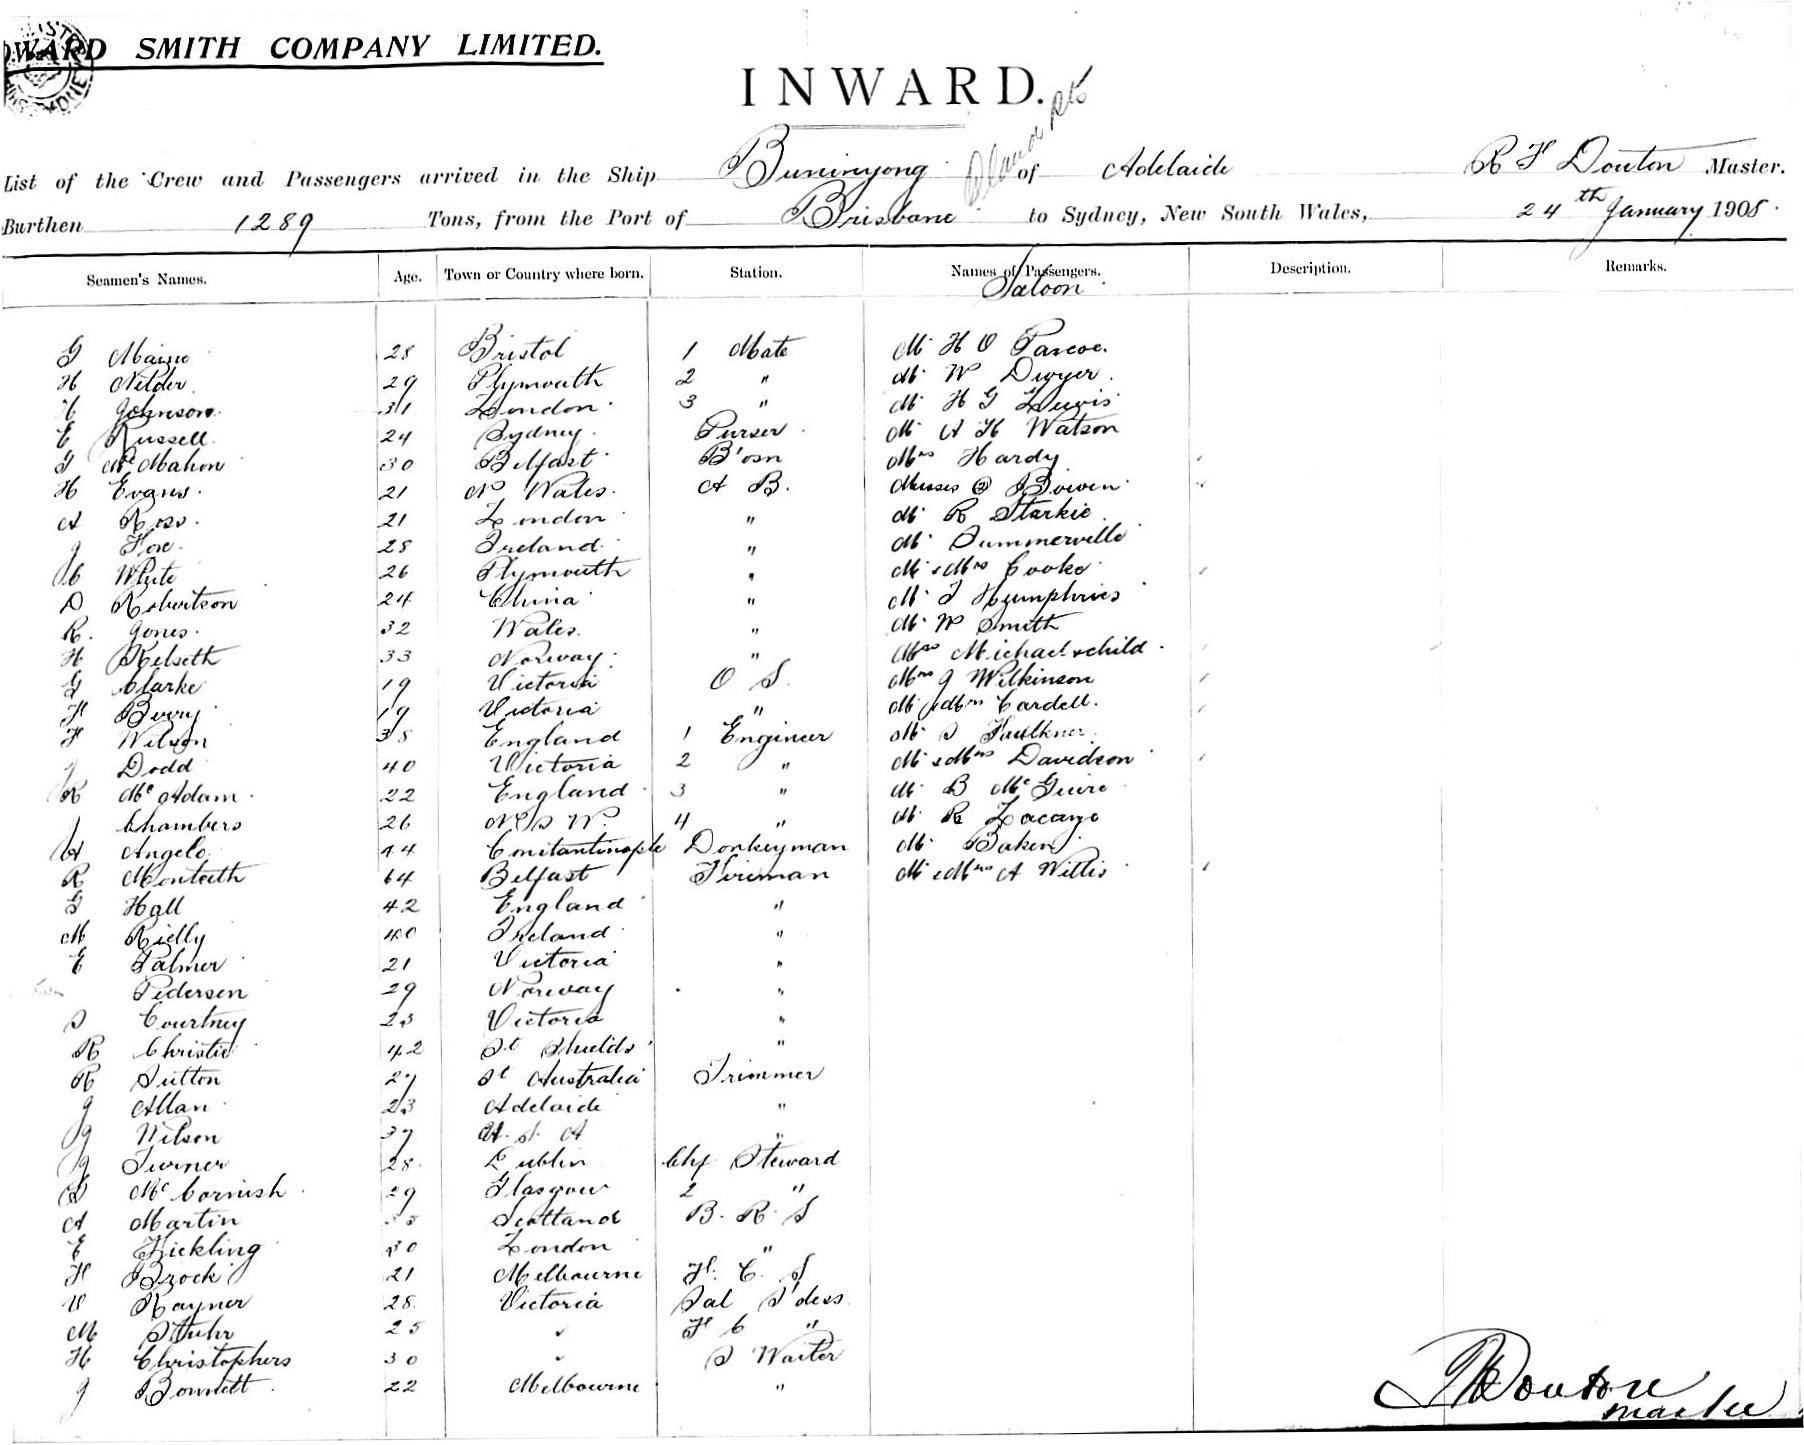 OWARD SMITH COMPANY LIMITED.
INWARD.
List of the Crew and Passengers arrived in the Ship Buninyong of Adelaide R F Douton Master.
Burthen 1289 Tons, from the Port of Brisbane to Sydney, New South Wales, 24th January 1908.
Seamen's Names. Age. Town or Country where born. Station. Names of Passengers. Description. Remarks.
Saloon
G 28 Bristol 1 Mate Mr H O Pascoe.
H Nilder 29 Plymouth 2 " Mr W Dwyer.
H Johnson 31 London 3 " Mr H G Lewis
E Russell 24 Sydney Purser Mr A H Watson
G McMahon 30 Belfast B'osn Mrs Hardy
H Evans 21 N Wales. A B. Misses (2) Bowen
A Ross 21 London " Mr R Starkie
J 28 Ireland " Mr Summerville
C White 26 Plymouth " Mr & Mrs Cooke
D Robertson 24 China " Mr J Humphries
R. Jones 32 Wales. " Mr W Smith
H Kelseth 33 Norway " Mrs Michael & child
G Clarke 19 Victoria O S. Mrs J Wilkinson
H Berry 19 Victoria " Mr & Mrs Cardell.
F Wilson 38 England 1 Engineer Mr S Faulkner
J Dodd 40 Victoria 2 " Mr & Mrs Davidson
R McAdam 22 England 3 " Mr B McGuire
J Chambers 26 N S W. 4 " Mr R Lacaze
A Angelo 44 Constantinople Donkeyman Mr Baken
R Monteith 64 Belfast Fireman Mr & Mrs A Willis
G Hall 42 England "
M Rielly 40 Ireland "
E Palmer 21 Victoria "
Pedersen 29 Norway "
S Courtney 23 Victoria "
R Christie 42 St Shields "
R Sutton 27 St Australia Trimmer
J Allan 23 Adelaide "
J Wilson 37 U. S. A "
J Turner 28 Dublin Chf Steward
D McCornish 29 Glasgow 2 "
A Martin Scotland B. R. S
E Hickling 30 London "
H Brock 21 Melbourne F. C. S
V Rayner 28 Victoria Sal S'dess
M Stuhr 25 " F C "
H Christophers 30 " S Waiter
J Bonnett 22 Melbourne "
R F Douton
master